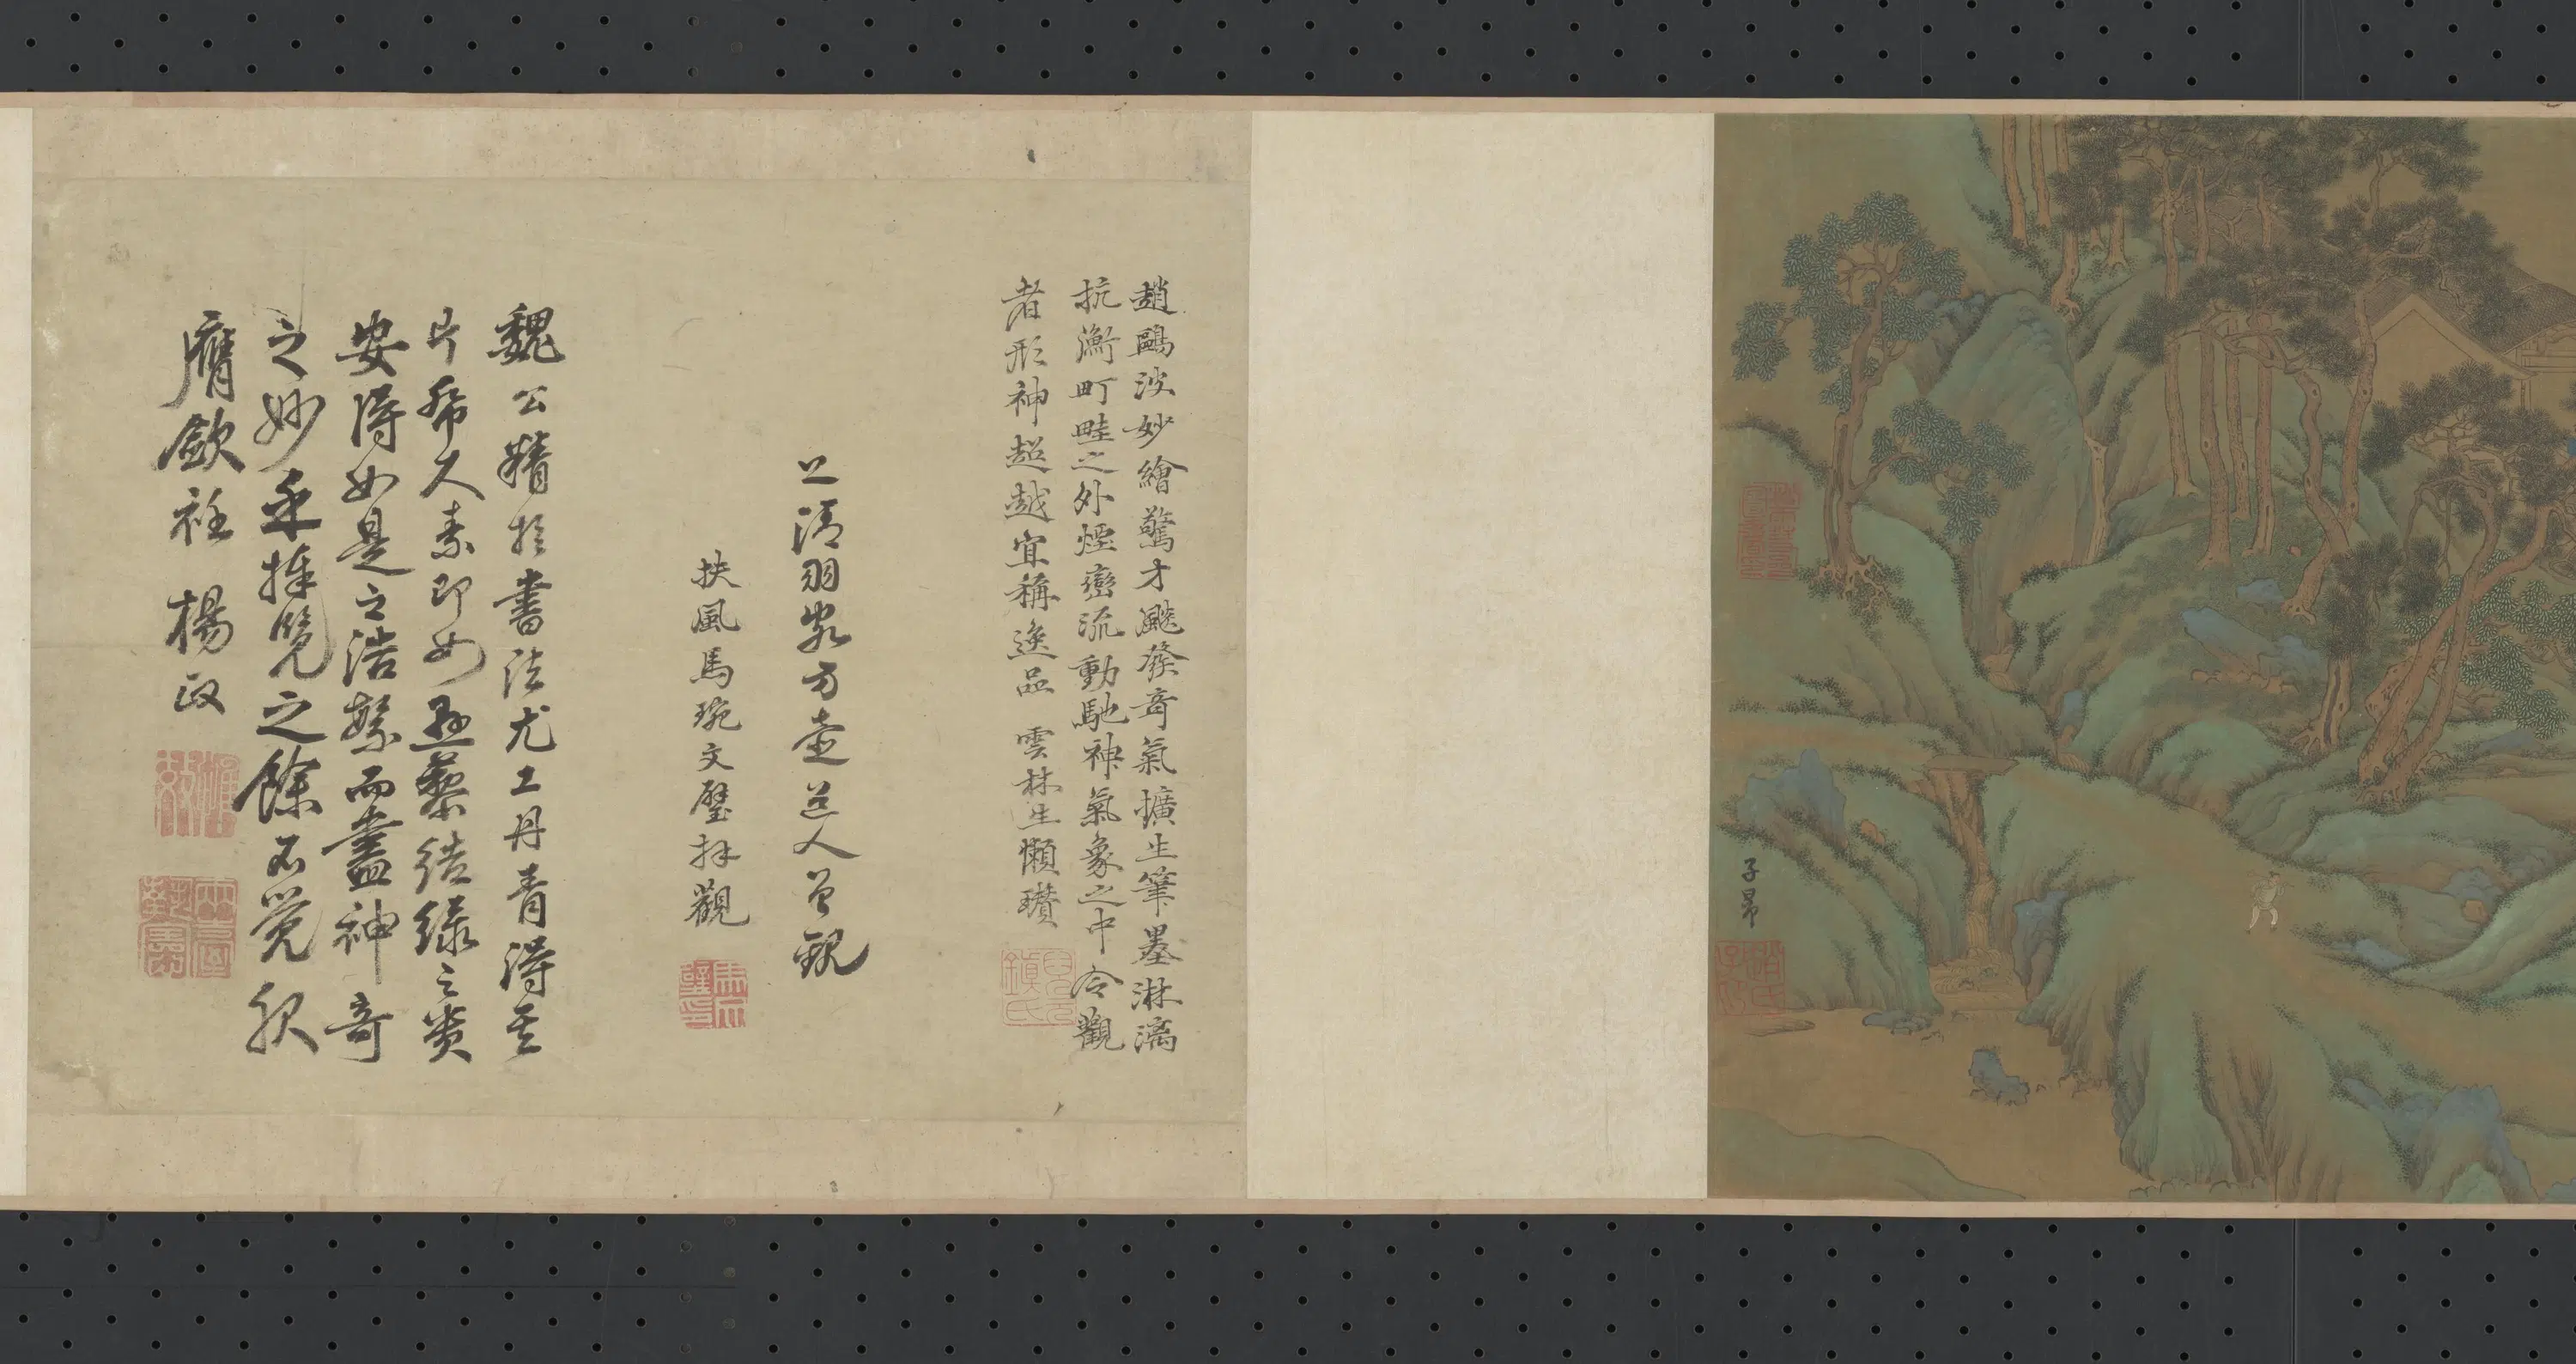 子昂
趙鷗波妙繪驚才飈發奇氣擴出筆墨淋漓
抗衡町畦之外煙巒流動馳神氣象之中令觀
者形神超越宜稱逸品 雲林生懶瓚
上清羽客方壺道人曾觀
扶風馬琬文璧拜觀
馬氏
魏公精於書法尤工丹青得其
片帋尺素即如
安得如是之浩繁而盡神奇
之妙乎捧覽之餘不覺
膺欽衽 楊政